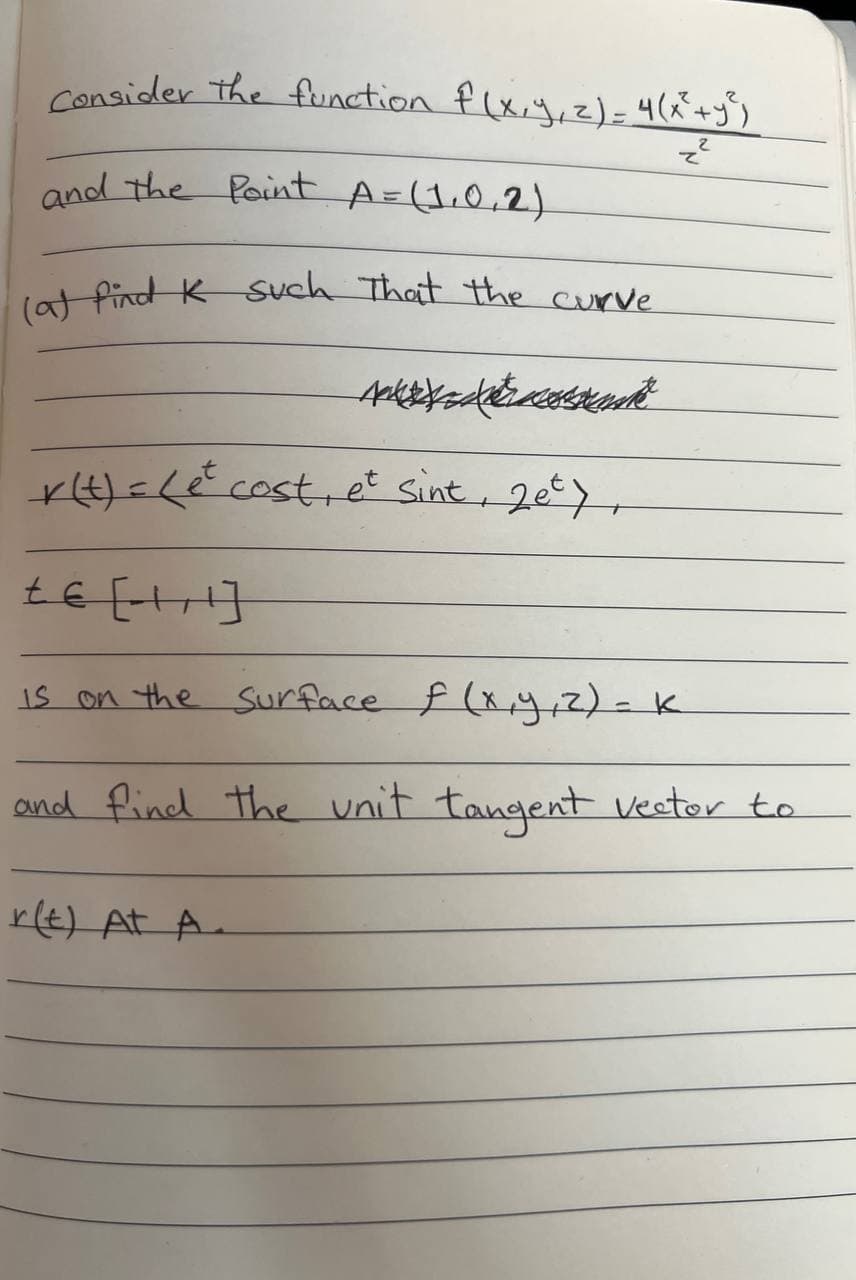 Consider the function f(x,y,z) = 4(x²+y²)/z²
and the Point A=(1,0,2)
(a) find K such That the curve
r(t) = ⟨e^t cost, e^t sint, 2e^t⟩,
t ∈ [-1,1]
is on the surface f(x,y,z) = K
and find the unit tangent vector to
r(t) At A.